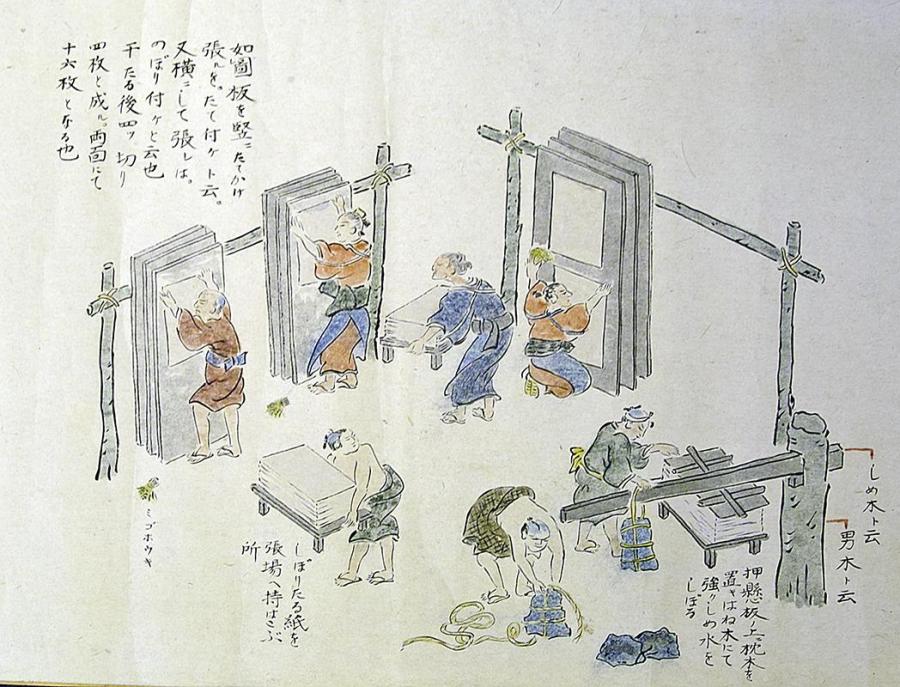 如圖板を竪ニたてかけ
張ルを。たて付ヶト云。
又横ニして張レは。
のぼり付ヶと云也
干たる後四ッ切り
四枚と成ル。両面にて
十六枚となる也
しめ木ト云
男木ト云
押懸板ノ上ニ枕木を
置キはね木にて
強クしめ水を
しぼる
しぼりたる紙を
張場へ持はこぶ
所
ミゴホウキ